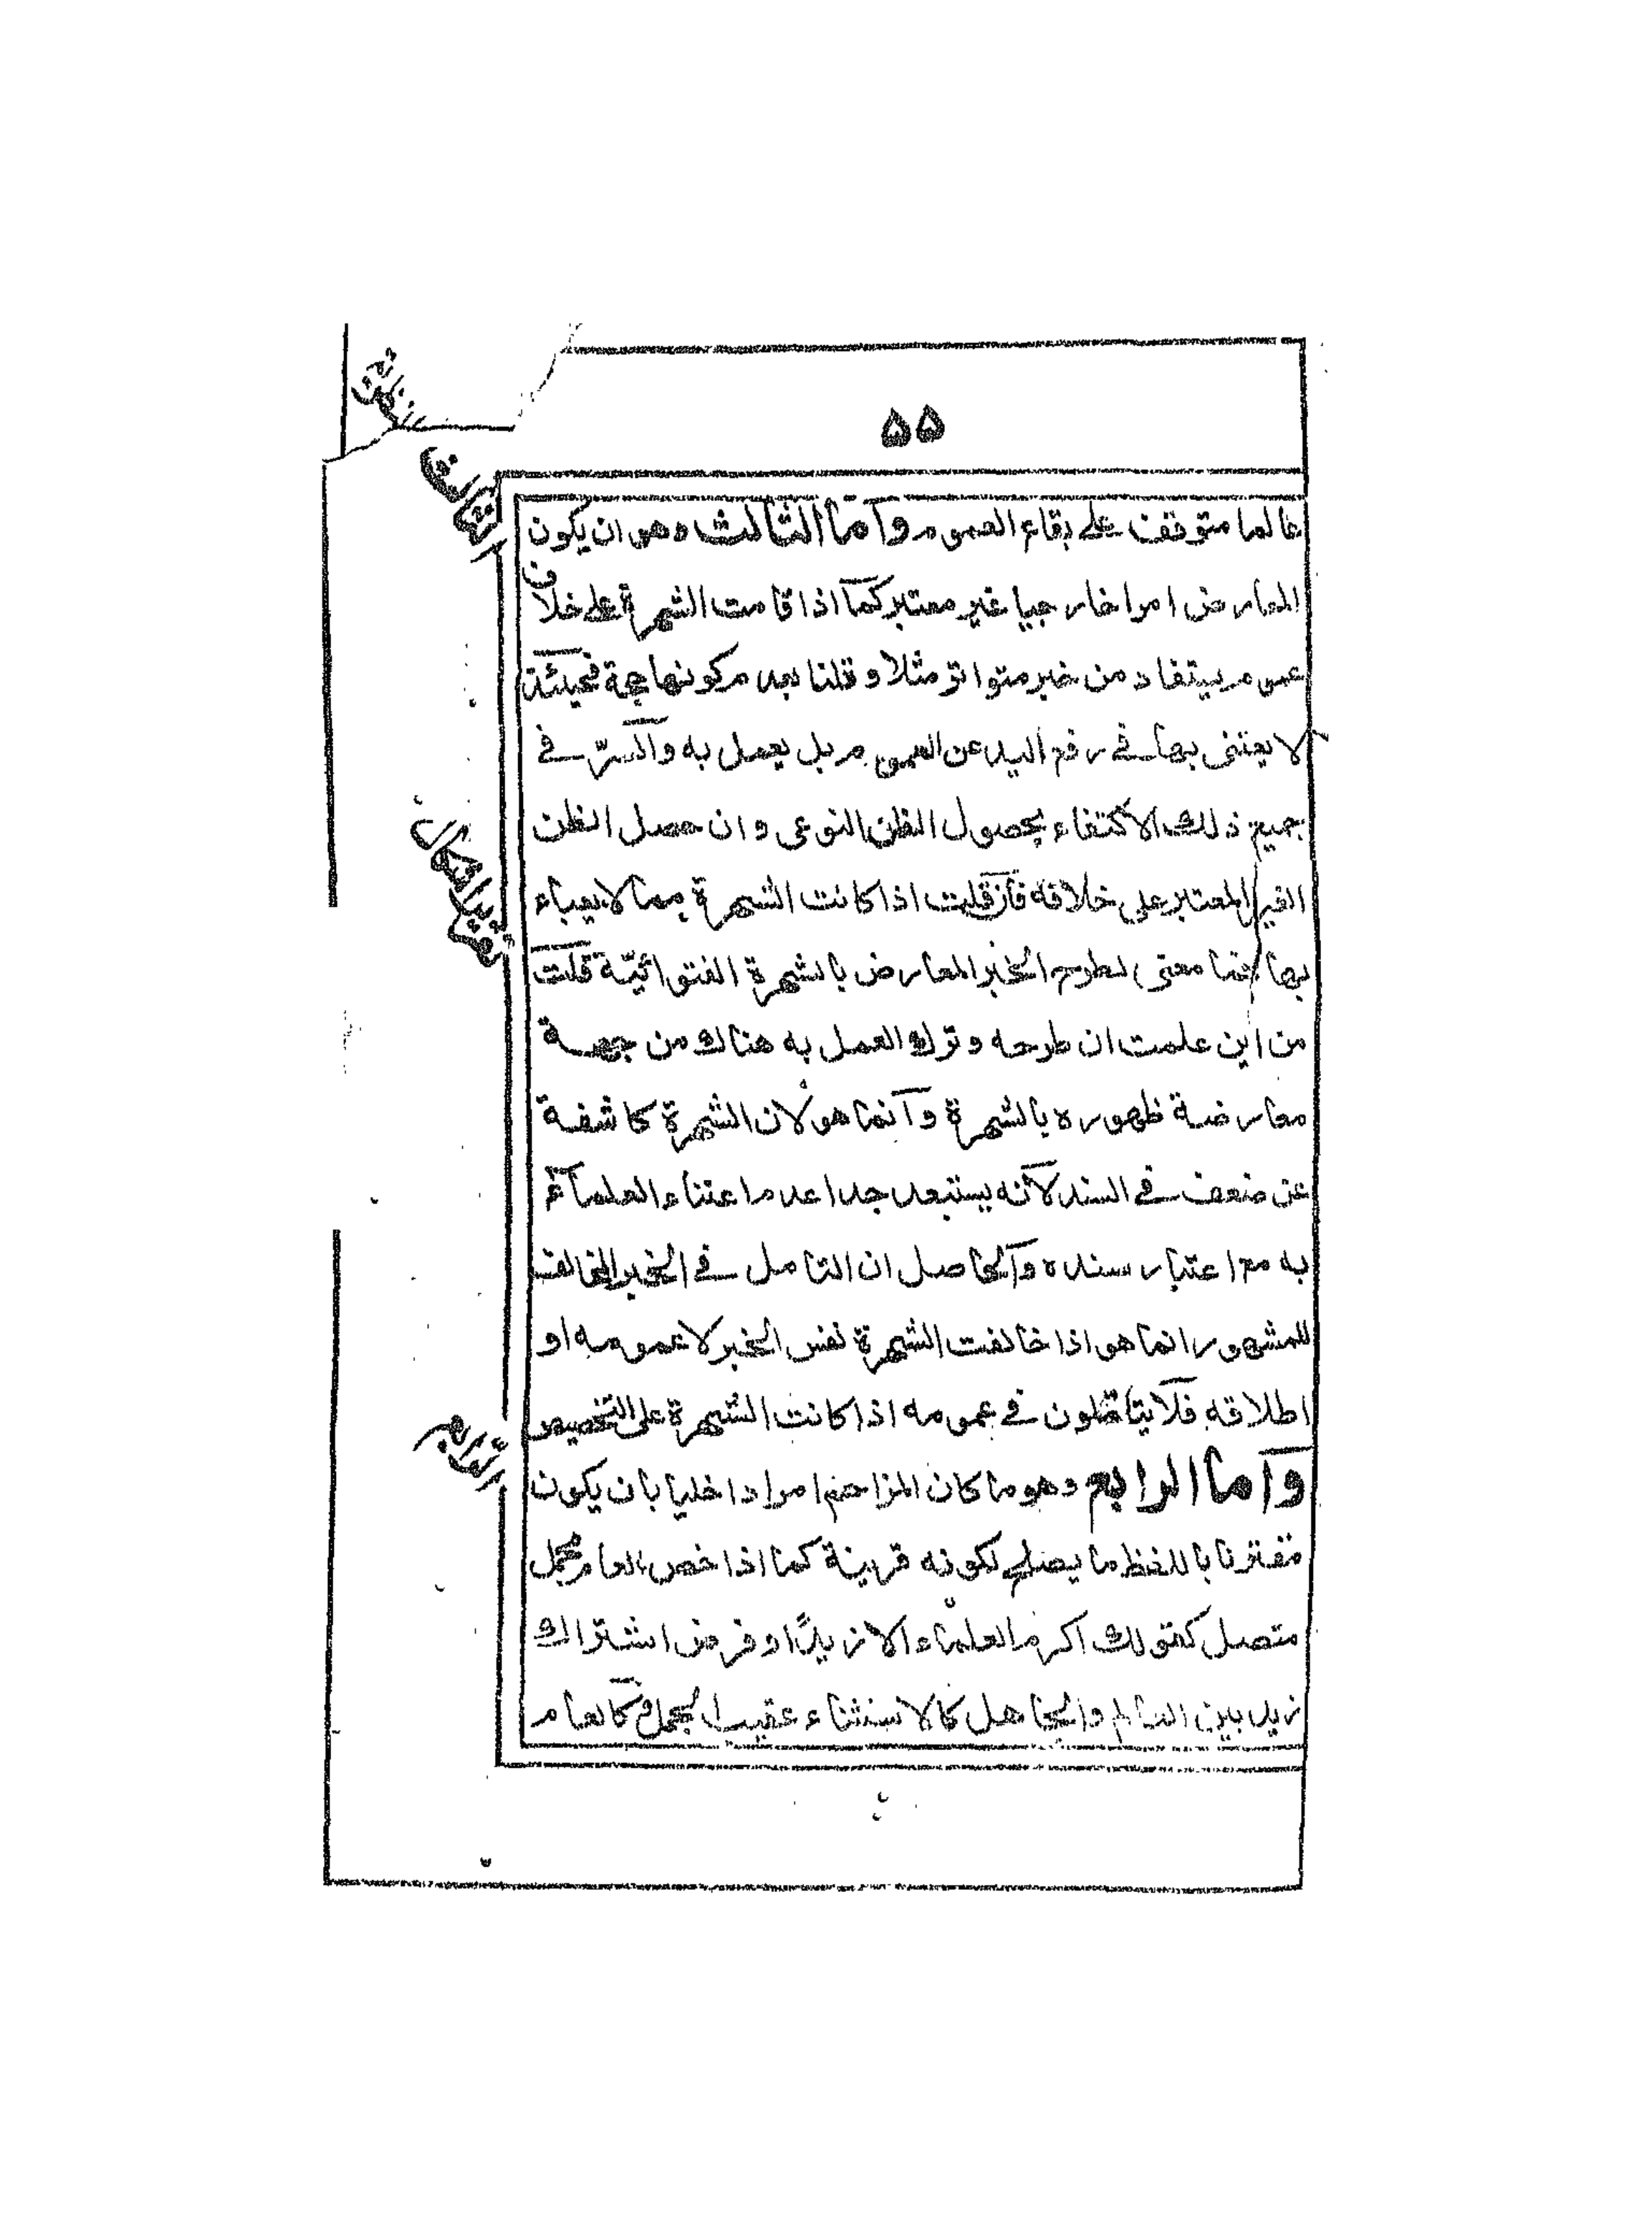 ۵۵
عالما متوقف على بقاء العموم وأما الثالث وهو ان يكون
المعارض امرا خارجيا غير معتبر كما اذا قامت الشهرة على خلاف
عموم يستفاد من خبر متواتر مثلا وقلنا بعدم كونها حجة فحينئذ
لا يعتنى بها في رفع اليد عن العموم بل يعمل به والسرّ في
جميع ذلك الاكتفاء بحصول الظن النوعى وان حصل الظن
الغير المعتبر على خلافه فان قلت اذا كانت الشهرة مما لا يعباء
بها فما معنى لطرح الخبر المعارض بالشهرة الفتوائيّة قلت
من اين علمت ان طرحه وترك العمل به هناك من جهة
معارضة ظهوره بالشهرة وانما هو لان الشهرة كاشفة
عن ضعف في السند لانه يستبعد جدا عدم اعتناء العلماء
به مع اعتبار سنده والحاصل ان التامل في الخبر المخالف
للمشهور انما هو اذا خالفت الشهرة نفس الخبر لا عمومه او
اطلاقه فلا يتأملون في عمومه اذا كانت الشهرة على التخصيص
وأما الرابع وهو ما كان المزاحم امرا داخليا بان يكون
مقترنا باللفظ ما يصلح لكونه قرينة كما اذا خص العام بمجمل
متصل كقولك اكرم العلماء الا زيدًا وفرض اشتراك
زيد بين العالم والجاهل كالاستثناء عقيب الجمل وكالعام
الثالث
تقرير اشكال
الرّابع